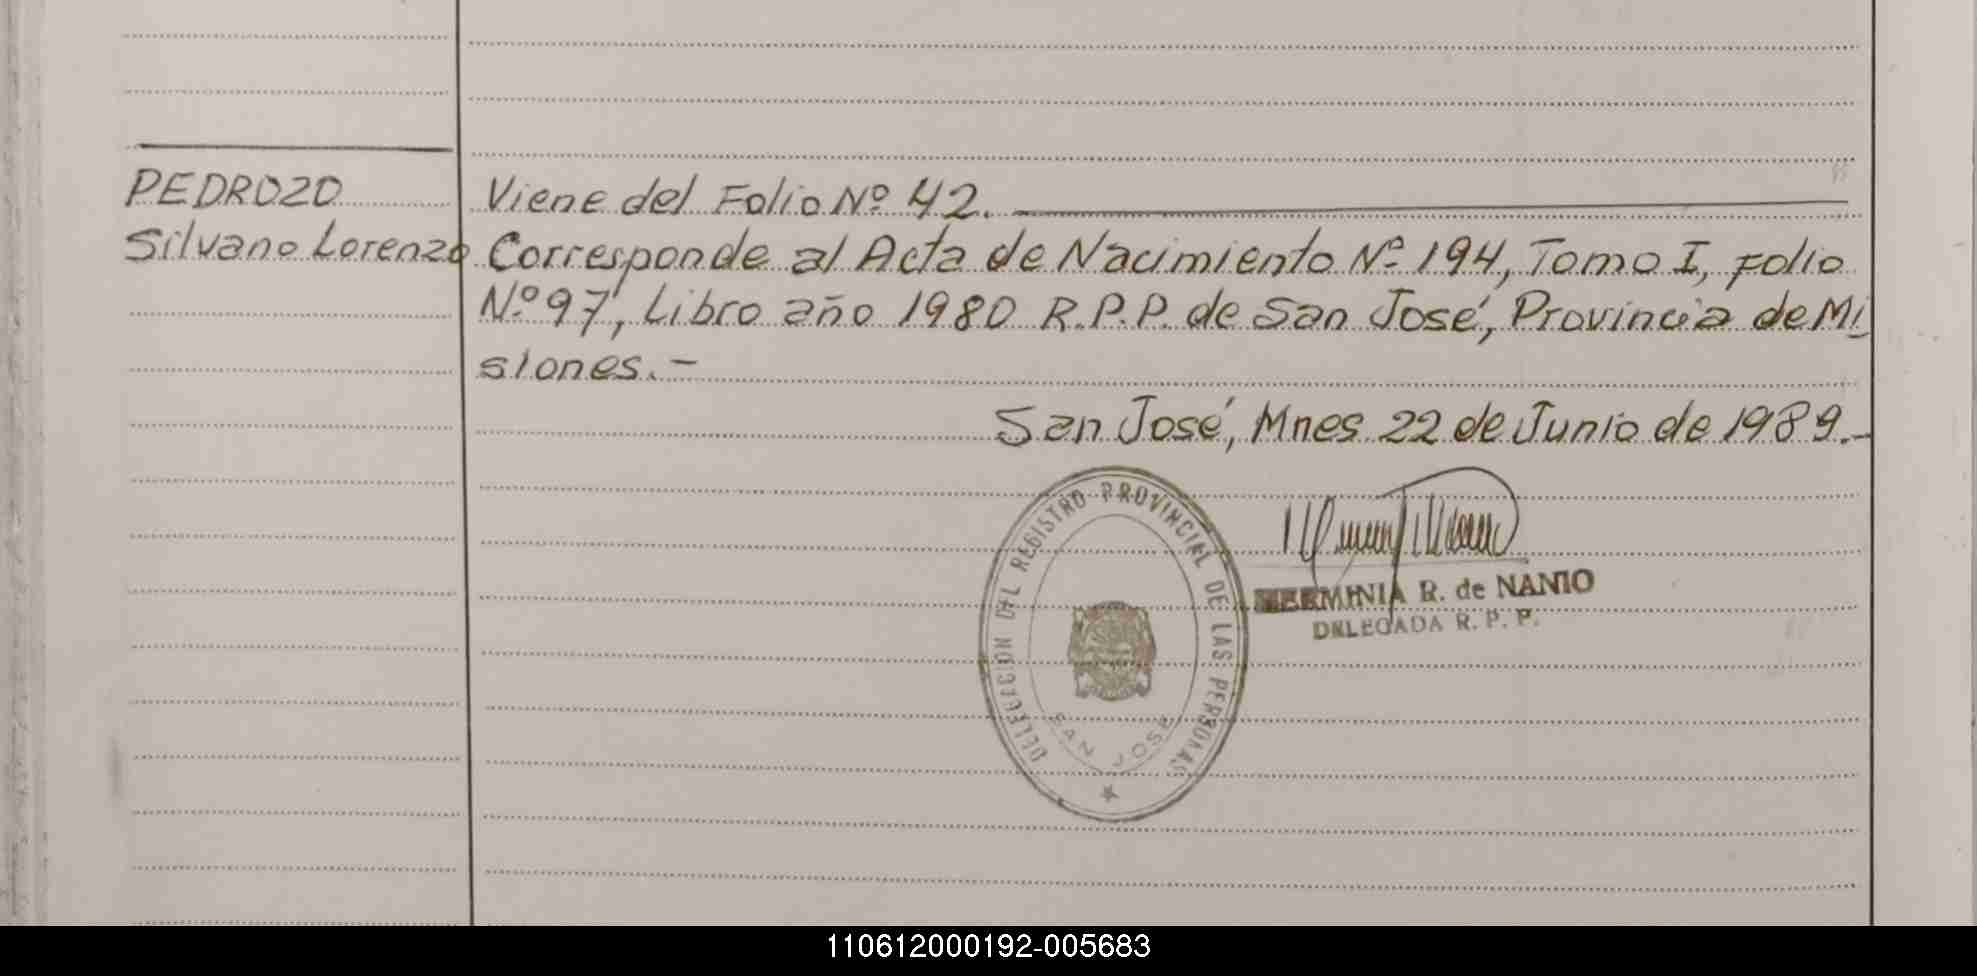 PEDROZO
Silvano Lorenzo
Viene del Folio Nº 42.
Corresponde al Acta de Nacimiento Nº 194, Tomo I, folio
Nº 97, Libro año 1980 R.P.P. de San José, Provincia de Mi
siones.-
San José, Mnes. 22 de Junio de 1989.-
DELEGACION DEL REGISTRO PROVINCIAL DE LAS PERSONAS
SAN JOSE
HERMINIA R. de NANIO
DELEGADA R. P. P.
110612000192-005683